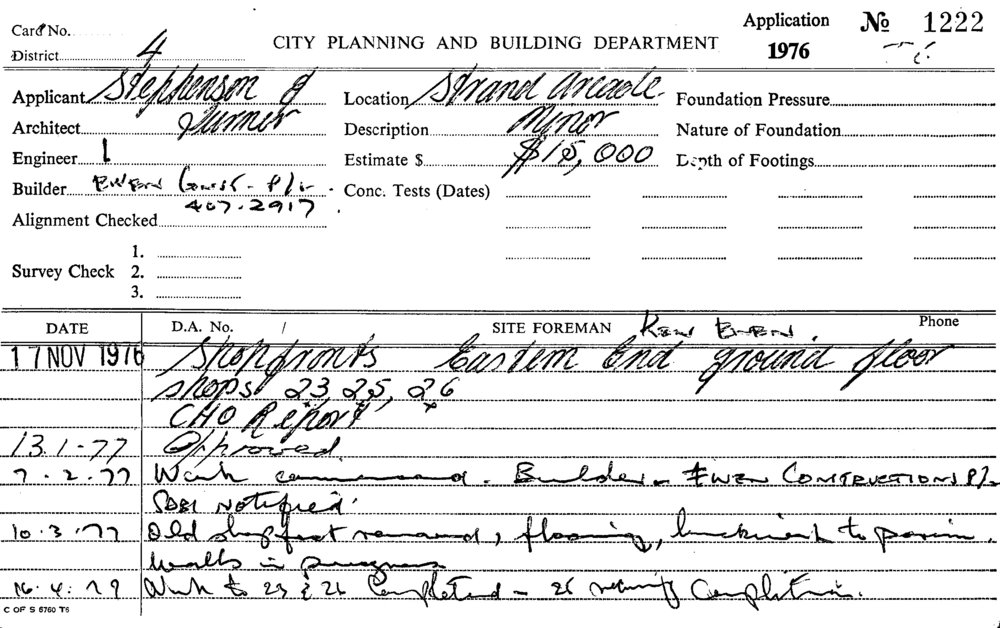 Card No.
Application № 1222
District 4
CITY PLANNING AND BUILDING DEPARTMENT
1976
Applicant Stephenson &
Location Strand Arcade.
Foundation Pressure
Architect Turner
Description Minor
Nature of Foundation
Engineer
Estimate $ $15,000
Depth of Footings
Builder EWEN Const. P/L.
Conc. Tests (Dates)
407-2917
Alignment Checked
1.
Survey Check 2.
3.
DATE D.A. No. / SITE FOREMAN KEN EWEN. Phone
17 NOV 1976 Shopfronts Eastern End ground floor
shops 23, 25, 26
CHO Report
13.1-77 Approved.
7.2.77 Work commenced. Builder - EWEN CONSTRUCTIONS P/L
NOTIFIED.
10.3.77 Old shopfront removed, flooring, brickwork to
walls in progress
16.4.79 Work to 23 & 26 Completed - Completion.
C OF S 6760 T6